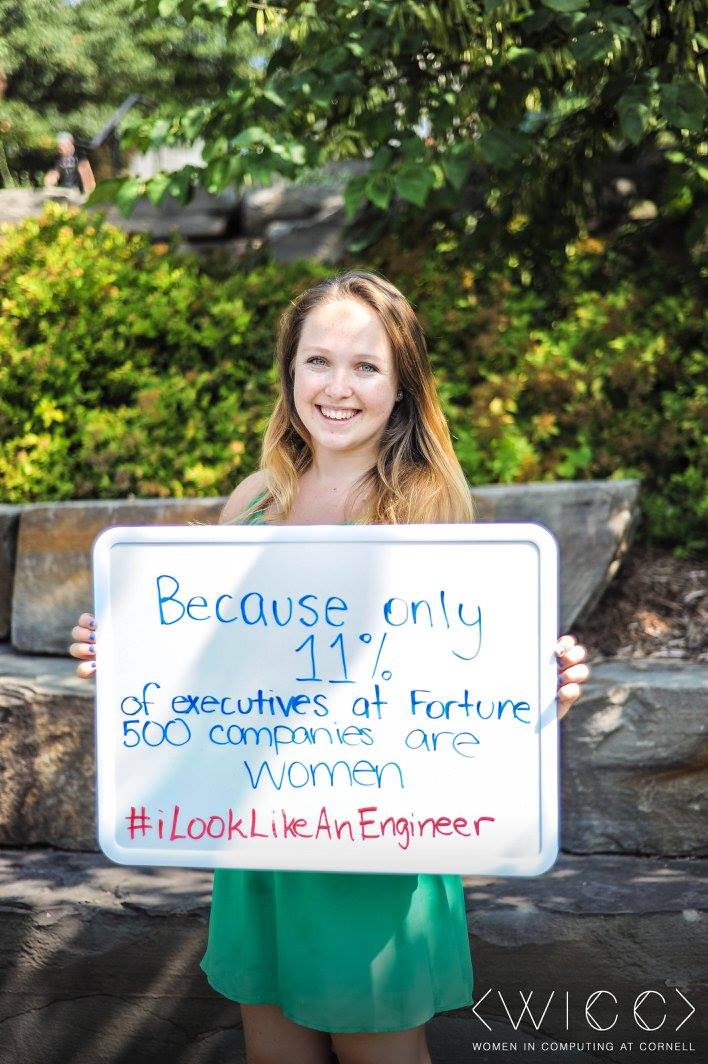 Because only
11%
of executives at Fortune
500 companies are
women
#iLookLikeAnEngineer
<WICC>
WOMEN IN COMPUTING AT CORNELL